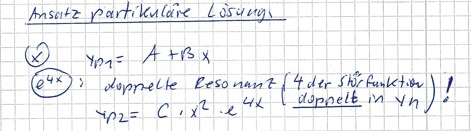 Ansatz partikuläre Lösung:
(x) yp1 = A + Bx
(e^4x): doppelte Resonanz (4 der Störfunktion doppelt in yh)!
yp2 = C · x² · e^4x